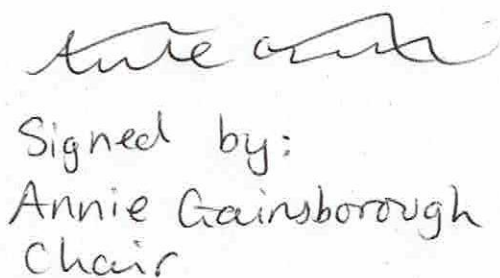 Signed by:
Annie Gainsborough
Chair